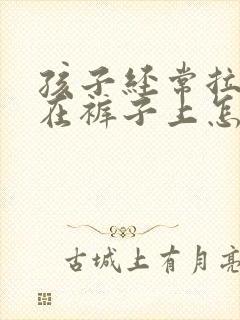 孩子经常拉
在裤子上怎
古城上有月亮